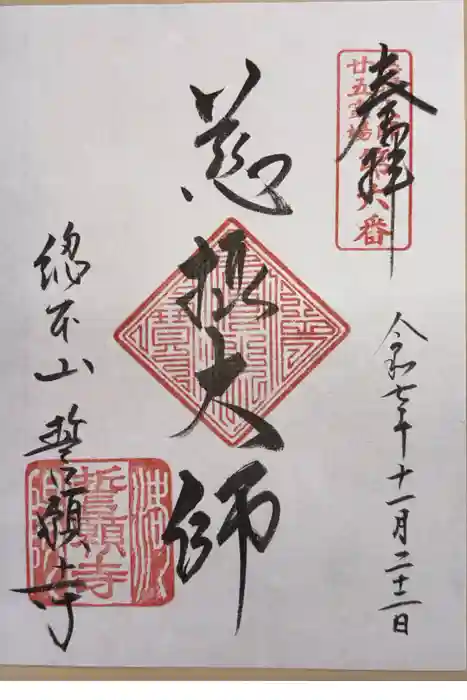 奉拝
廿五霊場
六番
慈摂大師
令和七年十一月二十二日
総本山 誓願寺
誓願寺